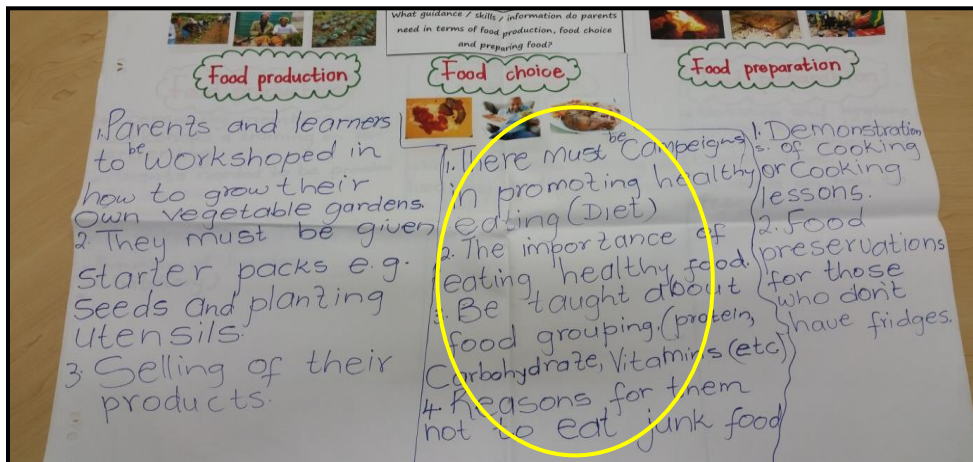 What guidance / skills / information do parents
need in terms of food production, food choice
and preparing food?
Food production
1. Parents and learners
to be workshoped in
how to grow their
own vegetable gardens.
2. They must be given
starter packs e.g.
seeds and planting
utensils.
3. Selling of their
products.
Food choice
1. There must be Campeigns
in promoting healthy
eating (Diet)
2. The importance of
eating healthy food.
3. Be taught about
food grouping. (protein,
Carbohydrate, Vitamins (etc)
4. Reasons for them
not to eat junk food
Food preparation
1. Demonstration
s. of Cooking
or Cooking
lessons.
2. Food
preservations
for those
who don't
have fridges.